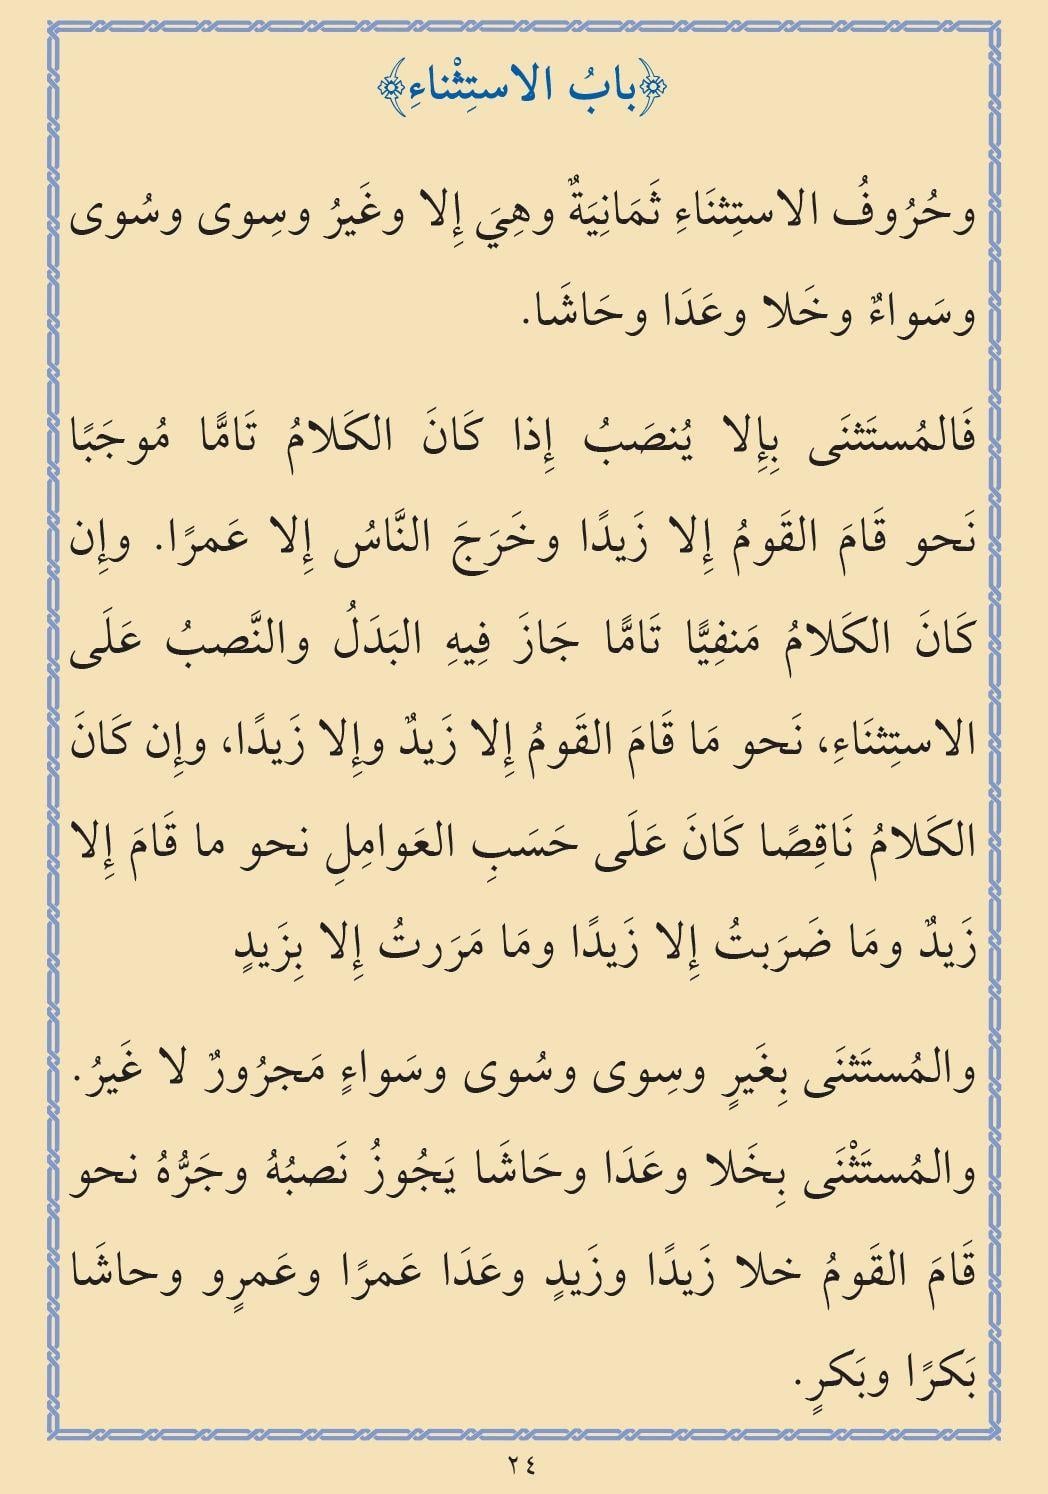 ﴿بابُ الاستِثْناءِ﴾
وحُرُوفُ الاستِثنَاءِ ثَمَانِيَةٌ وهِيَ إِلا وغَيرُ وسِوى وسُوى
وسَواءٌ وخَلا وعَدَا وحَاشَا.
فَالمُستَثنَى بِإِلا يُنصَبُ إِذا كَانَ الكَلامُ تَامًّا مُوجَبًا
نَحو قَامَ القَومُ إِلا زَيدًا وخَرَجَ النَّاسُ إِلا عَمرًا. وإِن
كَانَ الكَلامُ مَنفِيًّا تَامًّا جَازَ فِيهِ البَدَلُ والنَّصبُ عَلَى
الاستِثنَاءِ، نَحو مَا قَامَ القَومُ إِلا زَيدٌ وإِلا زَيدًا، وإِن كَانَ
الكَلامُ نَاقِصًا كَانَ عَلَى حَسَبِ العَوامِلِ نحو ما قَامَ إِلا
زَيدٌ ومَا ضَرَبتُ إِلا زَيدًا ومَا مَرَرتُ إِلا بِزَيدٍ
والمُستَثنَى بِغَيرٍ وسِوى وسُوى وسَواءٍ مَجرُورٌ لا غَيرُ.
والمُستَثْنَى بِخَلا وعَدَا وحَاشَا يَجُوزُ نَصبُهُ وجَرُّهُ نحو
قَامَ القَومُ خلا زَيدًا وزَيدٍ وعَدَا عَمرًا وعَمرٍو وحاشَا
بَكرًا وبَكرٍ.
٢٤